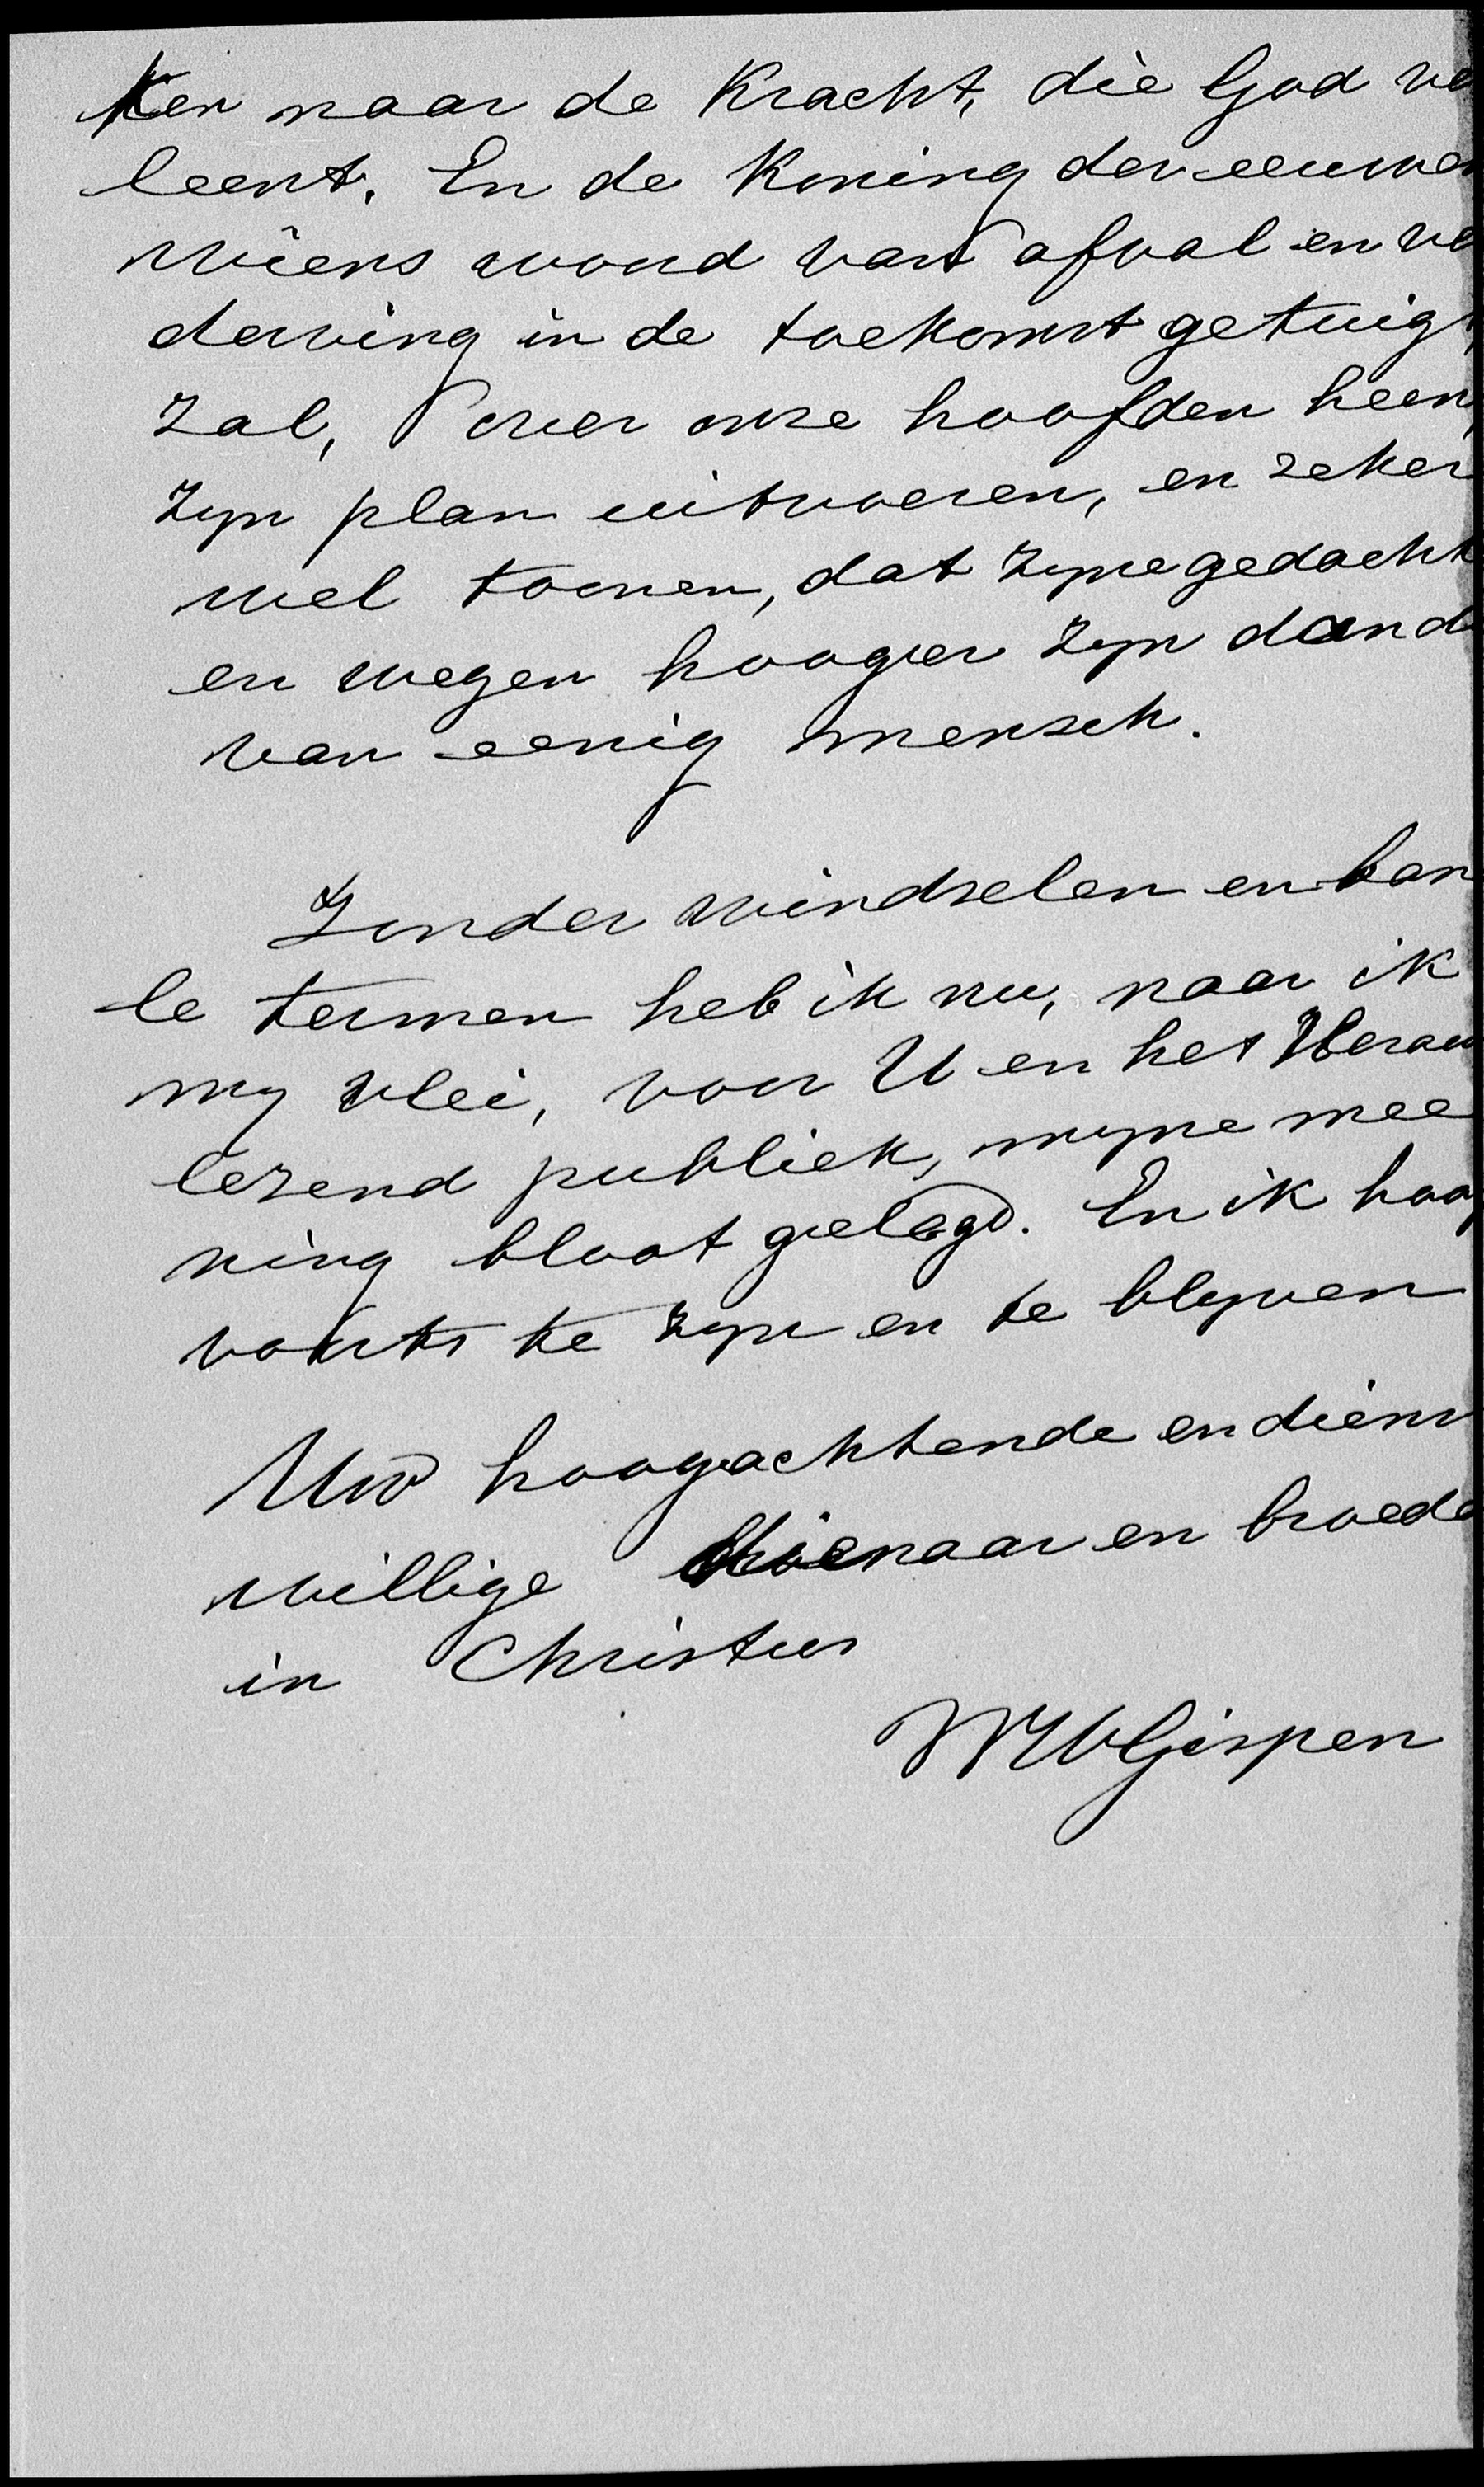 ken naar de kracht, die God ve
leent. En de Koning der eeuwen
wiens woord van afval en ve
derving in de toekomst getuigt,
zal, over onze hoofden heen,
zyn plan uitvoeren, en zeker
wel toonen, dat zyne gedacht
en wegen hooger zyn dan d
van eenig mensch.
Zonder windselen en ban
le termen heb ik nu, naar ik
my vlei, voor U en het Herau
lezend publiek, myne mee
ning bloot gelegd. En ik hoo
voorts te zyn en te blyven
Uw hoogachtende en diens
willige dienaar en broede
in Christus
W H Gispen